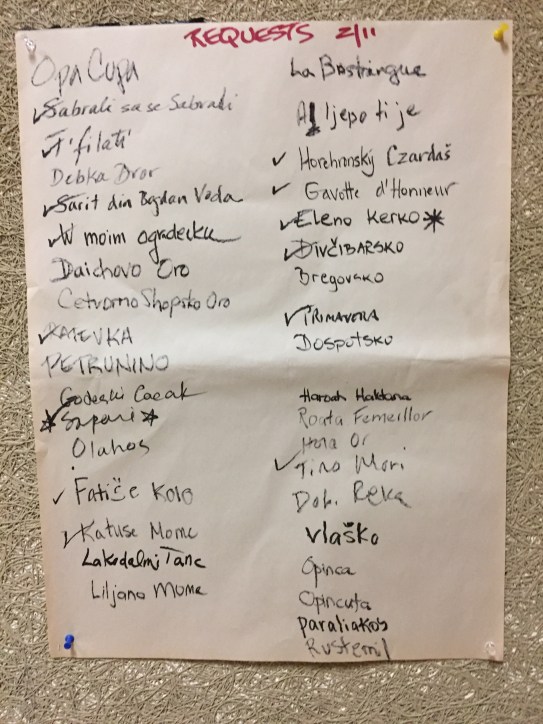 REQUESTS 2/11
Opa Cupa
✓ Sabrali sa se Sabrali
✓ T'filati
Debka Dror
✓ Sarit din Bogdan Voda
✓ W moim ogrodecku
Daichovo Oro
Cetvorno Shopsko Oro
✓ RATEVKA
PETRUNINO
Godecki Cacak
* Sapari *
Olahos
✓ Fatiše Kolo
✓ Katuse Mome
Lakodalmi Tanc
Liljano Mome
La Bastringue
Al ljepo ti je
✓ Horehronský Czardaš
✓ Gavotte d'Honneur
✓ Eleno Kerko *
✓ DIVČIBARSKO
Bregovsko
✓ PRIMAVERA
DOSPOTSKO
Haroah Haktana
Roata Femeillor
Hora Or
✓ Tino Mori
Dob. Reka
Vlaško
Opinca
Opincuta
paraliakos
Rustemil